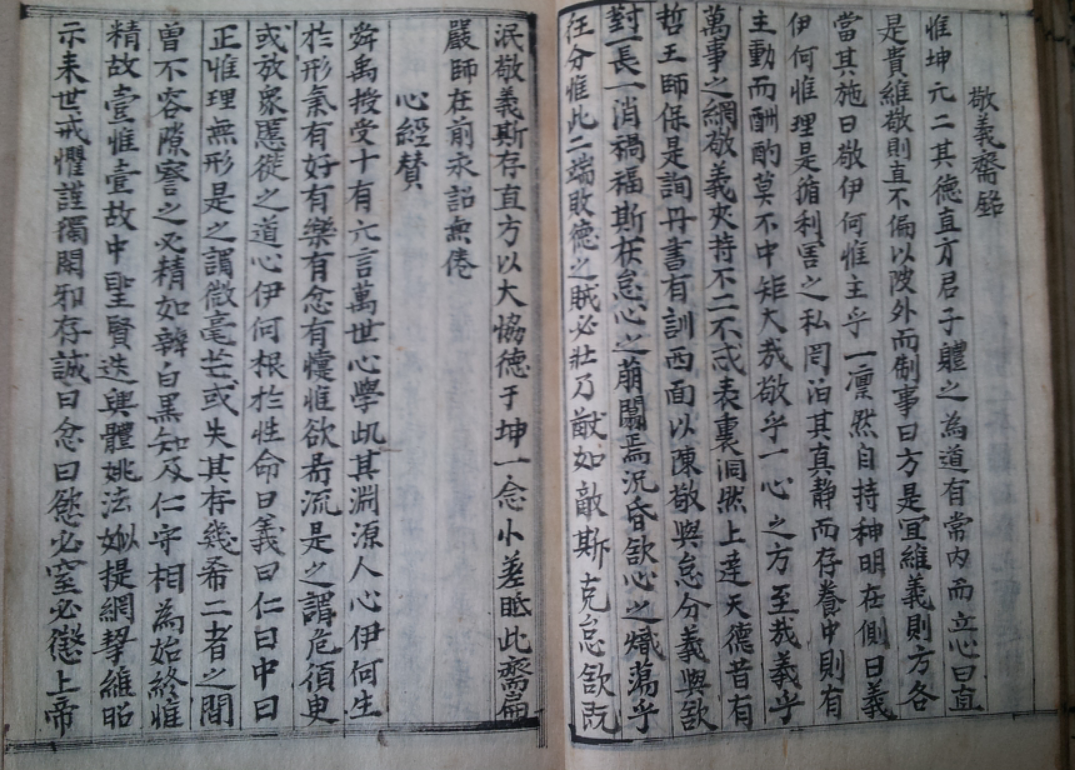 敬義齋銘
惟坤六二其德直方君子軆之為道有常內而立心曰直
是貴維敬則直不偏以陂外而制事曰方是宜維義則方各
當其施曰敬伊何惟主乎一凛然自持神明在側曰義
伊何惟理是循利害之私罔汩其真靜而存養中則有
主動而酬酌莫不中矩大哉敬乎一心之方至哉義乎
萬事之綱敬義夾持不二不忒表裏洞然上達天德昔有
哲王師保是詢丹書有訓西面以陳敬與怠分義與欲
對一長一消禍福斯在怠心之萌闒焉沉昏欲心之熾蕩乎
狂分惟此二端敗德之賊必壯乃猷如敵斯克怠欲既
泯敬義斯存直方以大恊德于坤一念小差眡此齋扁
嚴師在前永詔無倦
心經贊
舜禹授受十有六言萬世心學此其淵源人心伊何生
於形氣有好有樂有忿有懥惟欲易流是之謂危須臾
或放衆慝從之道心伊何根於性命曰義曰仁曰中曰
正惟理無形是之謂微毫芒或失其存幾希二者之間
曾不容隙察之必精如辨白黑知及仁守相為始終惟
精故壹惟壹故中聖賢迭興軆姚法姒提綱挈維昭
示来世戒懼謹獨閑邪存誠曰忿曰慾必窒必懲上帝